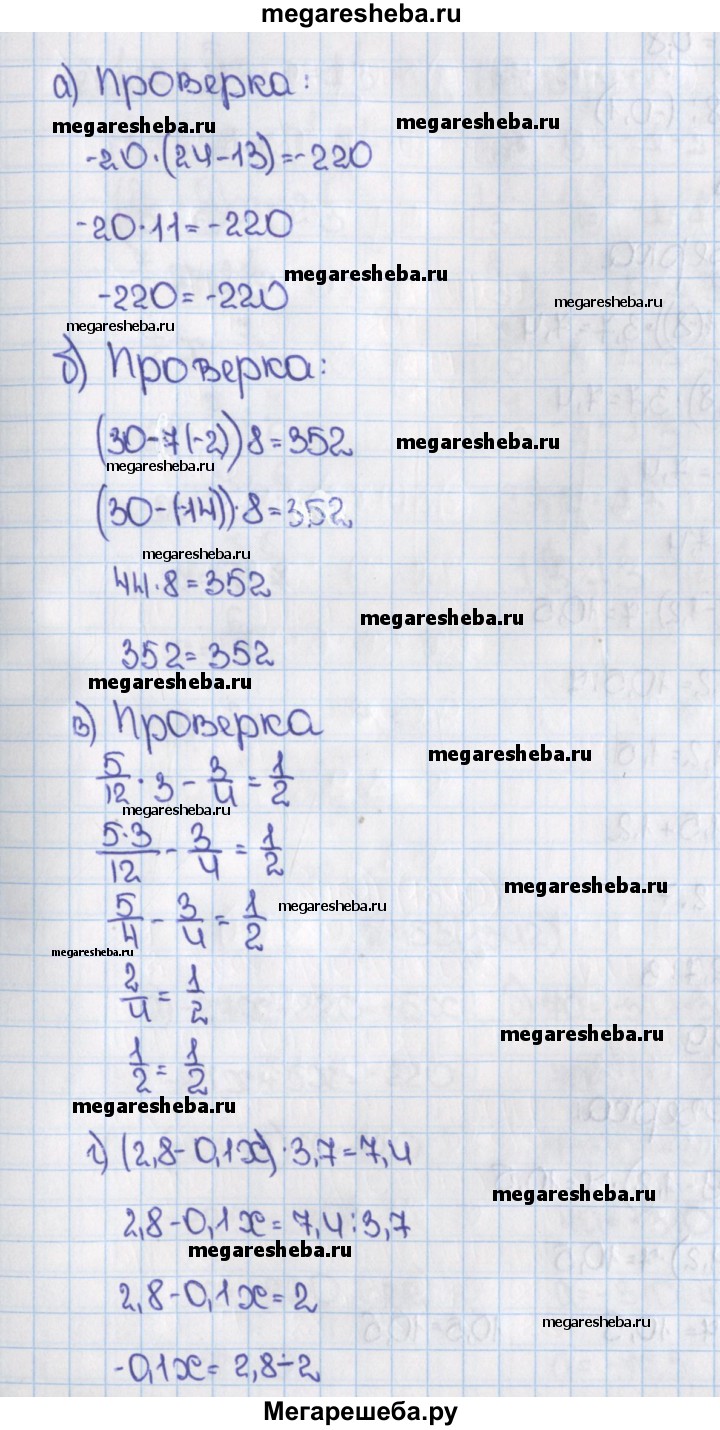 megaresheba.ru
а) Проверка:
megaresheba.ru megaresheba.ru
-20·(24-13)=-220
-20·11=-220
megaresheba.ru
-220=-220
megaresheba.ru
megaresheba.ru
б) Проверка:
(30-7(-2))8=352
megaresheba.ru
megaresheba.ru
(30-(-14))·8=352
megaresheba.ru
44·8=352
megaresheba.ru
352=352
megaresheba.ru
в) Проверка
megaresheba.ru
5/12·3-3/4=1/2
megaresheba.ru
5·3/12-3/4=1/2
megaresheba.ru
5/4-3/4=1/2
megaresheba.ru
megaresheba.ru
2/4=1/2
megaresheba.ru
1/2=1/2
megaresheba.ru
г) (2,8-0,1x)·3,7=7,4
megaresheba.ru
2,8-0,1x=7,4:3,7
megaresheba.ru
2,8-0,1x=2
megaresheba.ru
-0,1x=2,8-2
Мегарешеба.ру